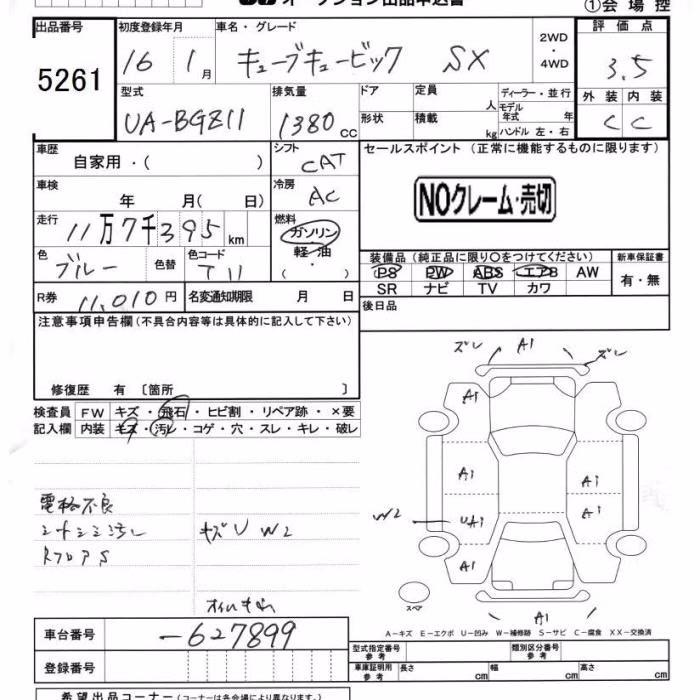 オークション出品申込書 ①会場控
出品番号 初度登録年月 車名・グレード 2WD・4WD 評価点
5261 16 1月 キューブキュービック SX 3.5
型式 排気量 ドア 定員 人 ディーラー・並行 外装 内装
UA-BGZ11 1380cc 形状 積載 kg モデル年式 年 ハンドル 左・右 C C
車歴 自家用・( ) シフト CAT セールスポイント(正常に機能するものに限ります)
車検 年 月(日) 冷房 AC NOクレーム・売切
走行 11万7千395km 燃料 ガソリン・軽油・( )
色 ブルー 色替 色コード 装備品(純正品に限り○をつけてください) 新車保証書
PS PW ABS エアB AW 有・無
R券 11,010円 名変通知期限 月 日 SR ナビ TV カワ
注意事項申告欄(不具合内容等は具体的に記入して下さい) 後日品
修復歴 有〔箇所 〕
検査員 FW キズ・飛石・ヒビ割・リペア跡・×要
記入欄 内装 キズ・汚レ・コゲ・穴・スレ・キレ・破レ
ズレ A1 ズレ
A1
A1 A1
W2 UA1 A1
A1 A1
電格不良
シートシミ汚レ キズU W2
スペア A1
A-キズ E-エクボ U-凹み W-補修跡 S-サビ C-腐食 XX-交換済
車台番号 -627899
型式指定番号 参考 類別区分番号 参考
登録番号 車庫証明用 参考 長さ cm 幅 cm 高さ cm
希望出品コーナー(コーナーは各会場により異なります。)